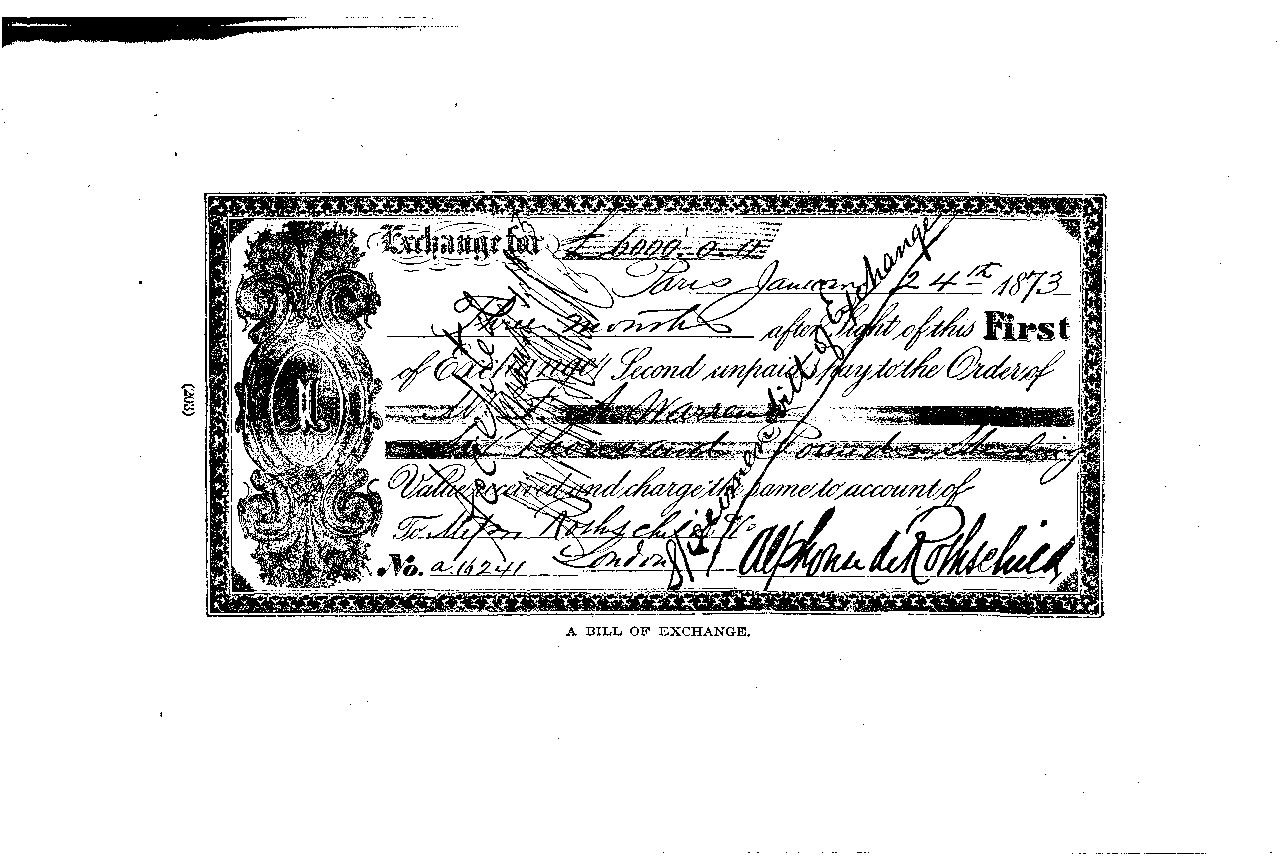 Exchange for £ 6000.0.0
Paris January 24th 1873
Three months after sight of this First
of Exchange Second unpaid pay to the Order of
Warren
Thousand Pounds Sterling
Value received and charge the same to account of
To Messrs Rothschild
London
No. a 16241
Alphonse de Rothschild
Specimen bill of Exchange
(203)
A BILL OF EXCHANGE.